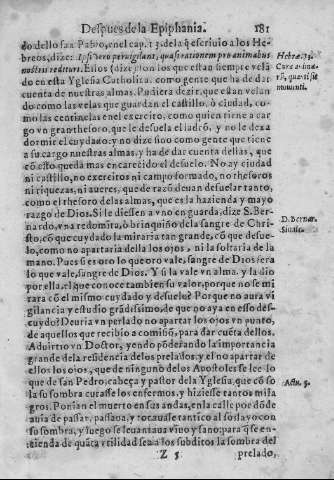 Despues de la Epiphania. 181
do dello san Pablo, en el cap. 13. de la q̃ escriuio a los He-
breos, dize: Ipsi vero peruigilant, quasi rationem pro animabus
nostris reddituri. Ellos (dize) son los que estan siempre velã
do en esta Yglesia Catholica, como gente que ha de dar
cuenta de nuestras almas. Pudiera dezir, que estan velan
do como las velas que guardan el castillo, ò ciudad, co-
mo las centinelas en el exercito, como quien tiene a car
go vn gran thesoro, que le desuela el ladrõ, y no le dexa
dormir el cuydado, y no dize sino como gente que tiene
a su cargo nuestras almas, y ha de dar cuenta dellas, que
cõ esto queda mas encarecido el desuelo. No ay ciudad
ni castillo, no exercitos ni campo formado, no thesoros
ni riquezas, ni aueres, que de razõ deuan desuelar tanto,
como el thesoro de las almas, que es la hazienda y mayo
razgo de Dios. Si le diessen a vno en guarda, dize S. Ber-
nardo, vna redomita, ò brinquiño de la sangre de Chri-
sto, cõ que cuydado la miraria tan grande, cõ que desue-
lo, como no apartaria della los ojos, ni la soltaria de la
mano. Pues si es oro lo que oro vale, sangre de Dios sera
lo que vale, sangre de Dios. Y si la vale vn alma, y la dio
por ella, el que conoce tambien su valor, porque no se mi
rara cõ el mismo cuydado y desuelo? Porque no aura vi
gilancia y estudio grãdissimo, de que no aya en esso des-
cuydo? Deuria vn perlado no apartar los ojos vn punto,
de aquellos que recibio a comissiõ, para dar cuẽta dellos.
Aduirtio vn Doctor, yendo põderando la importancia
grande de la residencia de los prelados, y el no apartar de
ellos los ojos, que de ninguno de los Apostoles se lee lo
que de san Pedro, cabeça y pastor de la Yglesia, que cõ so
la su sombra curasse los enfermos, y hiziesse tantos mila
gros. Ponian el muerto en sus andas, en la calle por dõde
auia de passar, passaua, y tocauasse tantico al soslayo con
so sombra, y luego se leuantaua viuo y sano: para q̃ se en-
tienda de quãta vtilidad sea a los subditos la sombra del
Z 5 prelado,
Hebræ. 13.
D. Bernar.
Actu. 5.